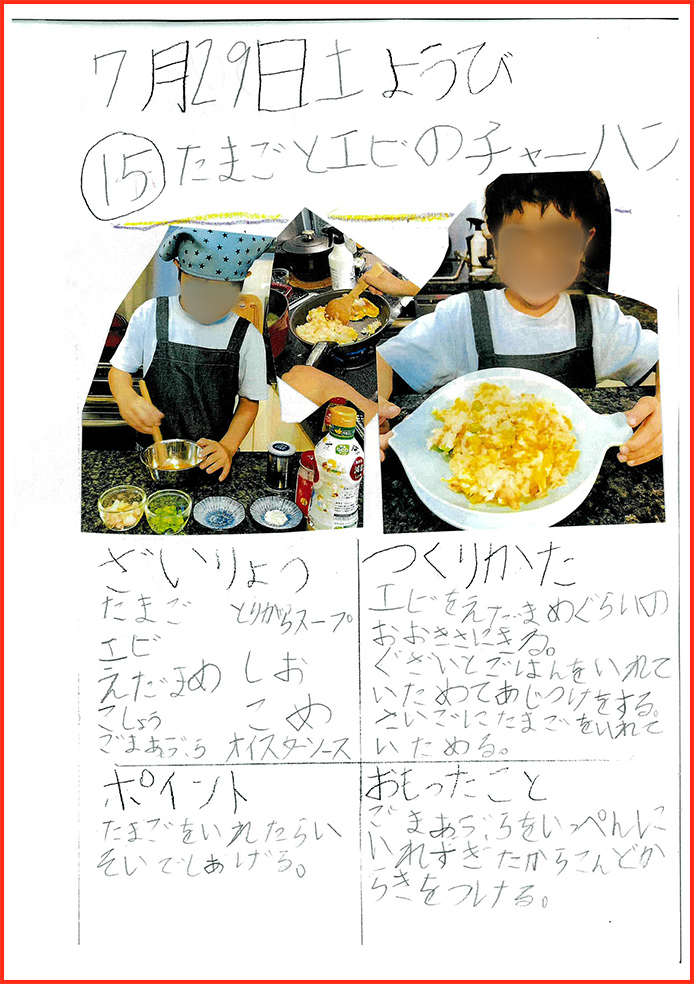 7月29日土ようび
⑮たまごとエビのチャーハン
ざいりょう
たまご とりがらスープ
エビ
えだまめ しお
こしょう こめ
ごまあぶら オイスターソース
つくりかた
エビをえだまめぐらいの
おおきさにきる。
ぐざいとごはんをいれて
いためてあじつけをする。
さいごにたまごをいれて
いためる。
ポイント
たまごをいれたらい
そいでしあげる。
おもったこと
ごまあぶらをいっぺんに
いれすぎたからこんどか
らきをつける。